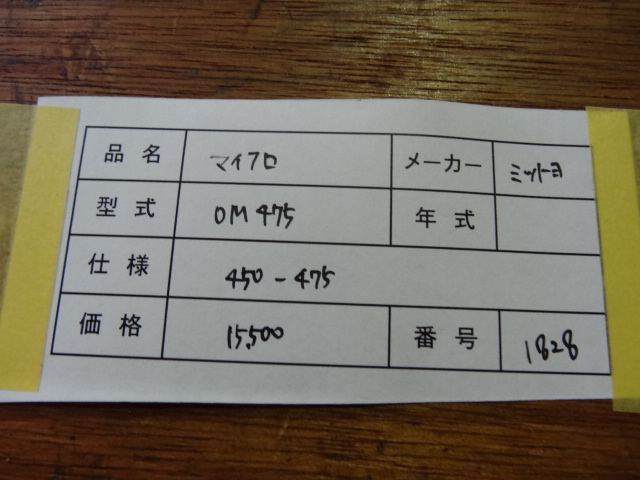 品名 マイクロ メーカー ミツトヨ
型式 OM475 年式
仕様 450-475
価格 15,500 番号 1828